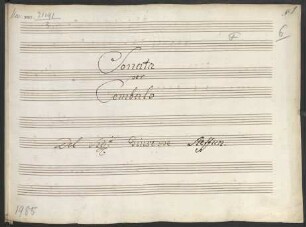 6
Sonata
de
Cembalo
Del Sigre Giuseppe Steffan.
1985